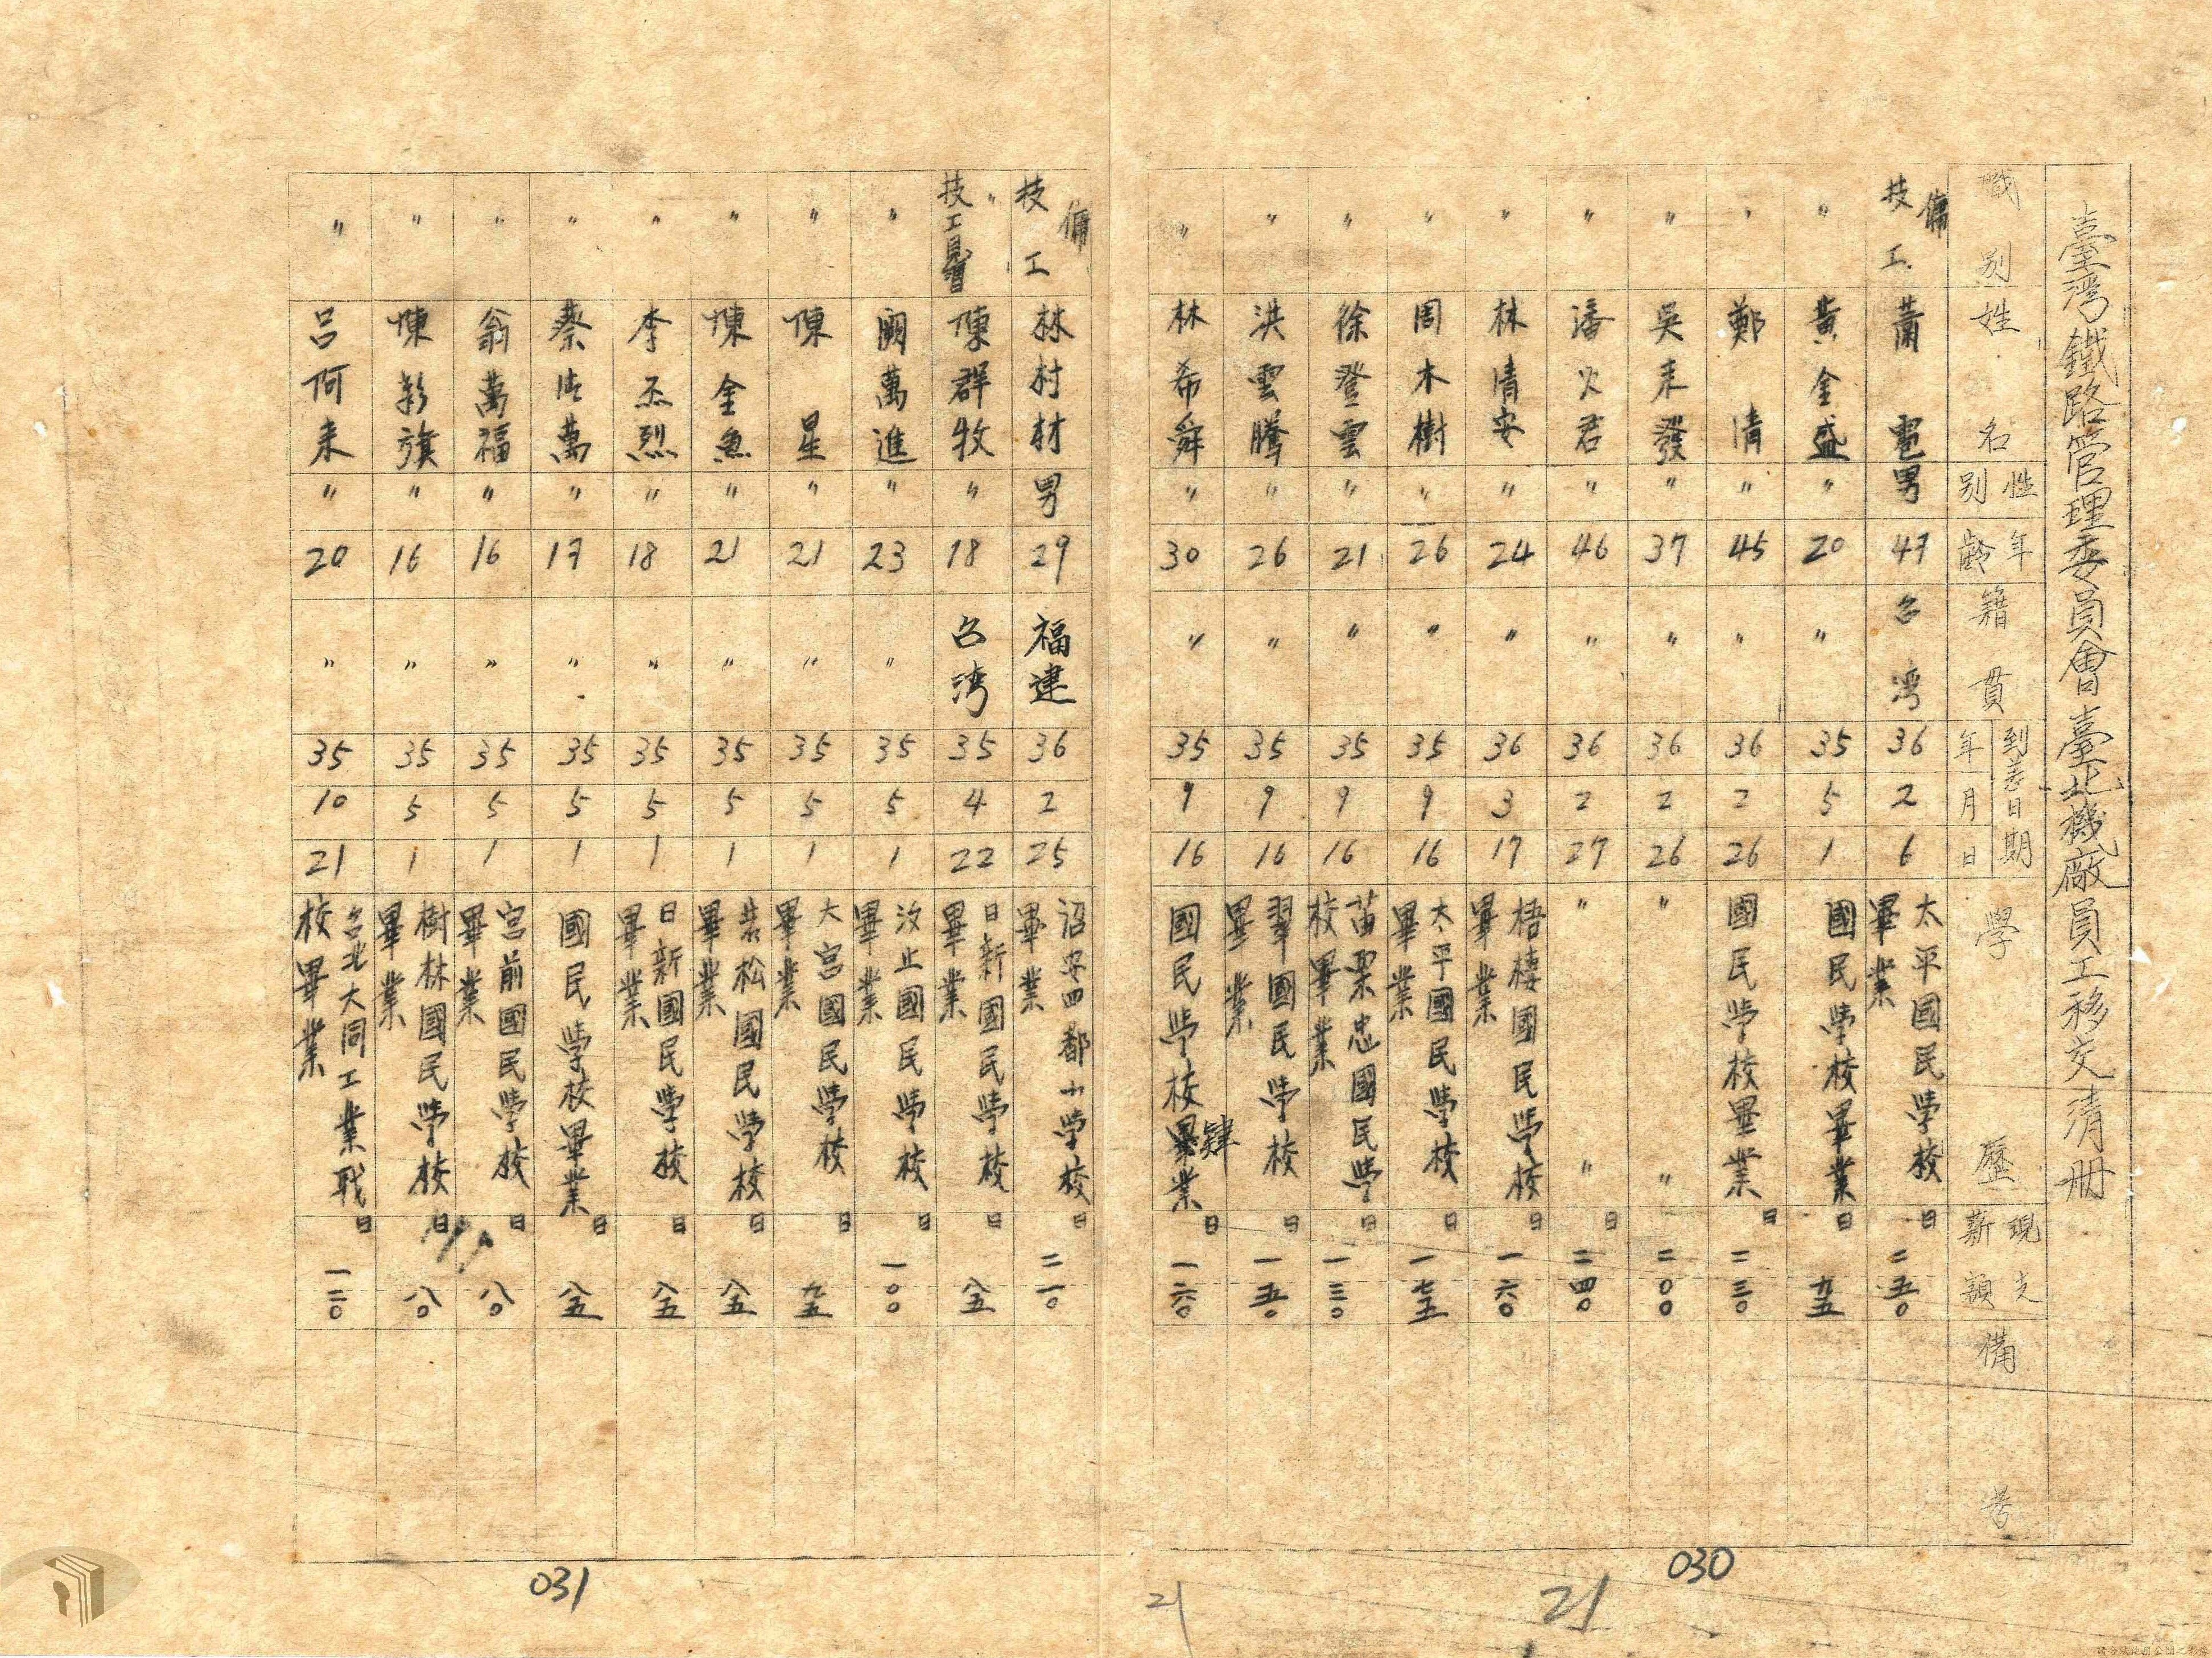 臺灣鐵路管理委員會臺北機廠員工移交清冊
職別 姓名 性別 年齡 籍貫 到差日期 年 月 日 學歷 現支薪額 備考
傭 技工 蕭 男 47 台灣 36 2 6 太平國民學校畢業 日 二五〇
〃 黃金盛 〃 20 〃 35 5 1 國民學校畢業 日 九五
〃 鄭清 〃 45 〃 36 2 26 國民學校畢業 日 二三〇
〃 吳来發 〃 37 〃 36 2 26 〃 〃 二〇〇
〃 潘火君 〃 46 〃 36 2 27 〃 〃 日 二四〇
〃 林清安 〃 24 〃 36 3 17 梧棲國民學校畢業 日 一六〇
〃 周木樹 〃 26 〃 35 9 16 太平國民學校畢業 日 一七五
〃 徐登雲 〃 21 〃 35 9 16 苗栗忠國民學校畢業 日 一三〇
〃 洪雲騰 〃 26 〃 35 9 16 翠國民學校畢業 日 一五〇
〃 林希舜 〃 30 〃 35 9 16 國民學校肄業 日 一六〇
030
21
21
傭 技工 林村材 男 29 福建 36 2 25 詔安四都小學校畢業 日 二一〇
〃 技工見習 陳群牧 〃 18 台湾 35 4 22 日新國民學校畢業 日 八五
〃 闕萬進 〃 23 〃 35 5 1 汐止國民學校畢業 日 一〇〇
〃 陳星 〃 21 〃 35 5 1 大宮國民學校畢業 日 九五
〃 陳金魚 〃 21 〃 35 5 1 松國民學校畢業 日 八五
〃 李丕烈 〃 18 〃 35 5 1 日新國民學校畢業 日 八五
〃 蔡萬 〃 17 〃 35 5 1 國民學校畢業 日 八五
〃 翁萬福 〃 16 〃 35 5 1 宮前國民學校畢業 日 八〇
〃 陳彰旗 〃 16 〃 35 5 1 樹林國民學校畢業 日 八〇
〃 呂阿来 〃 20 〃 35 10 21 台北大同工業職校畢業 日 一二〇
031